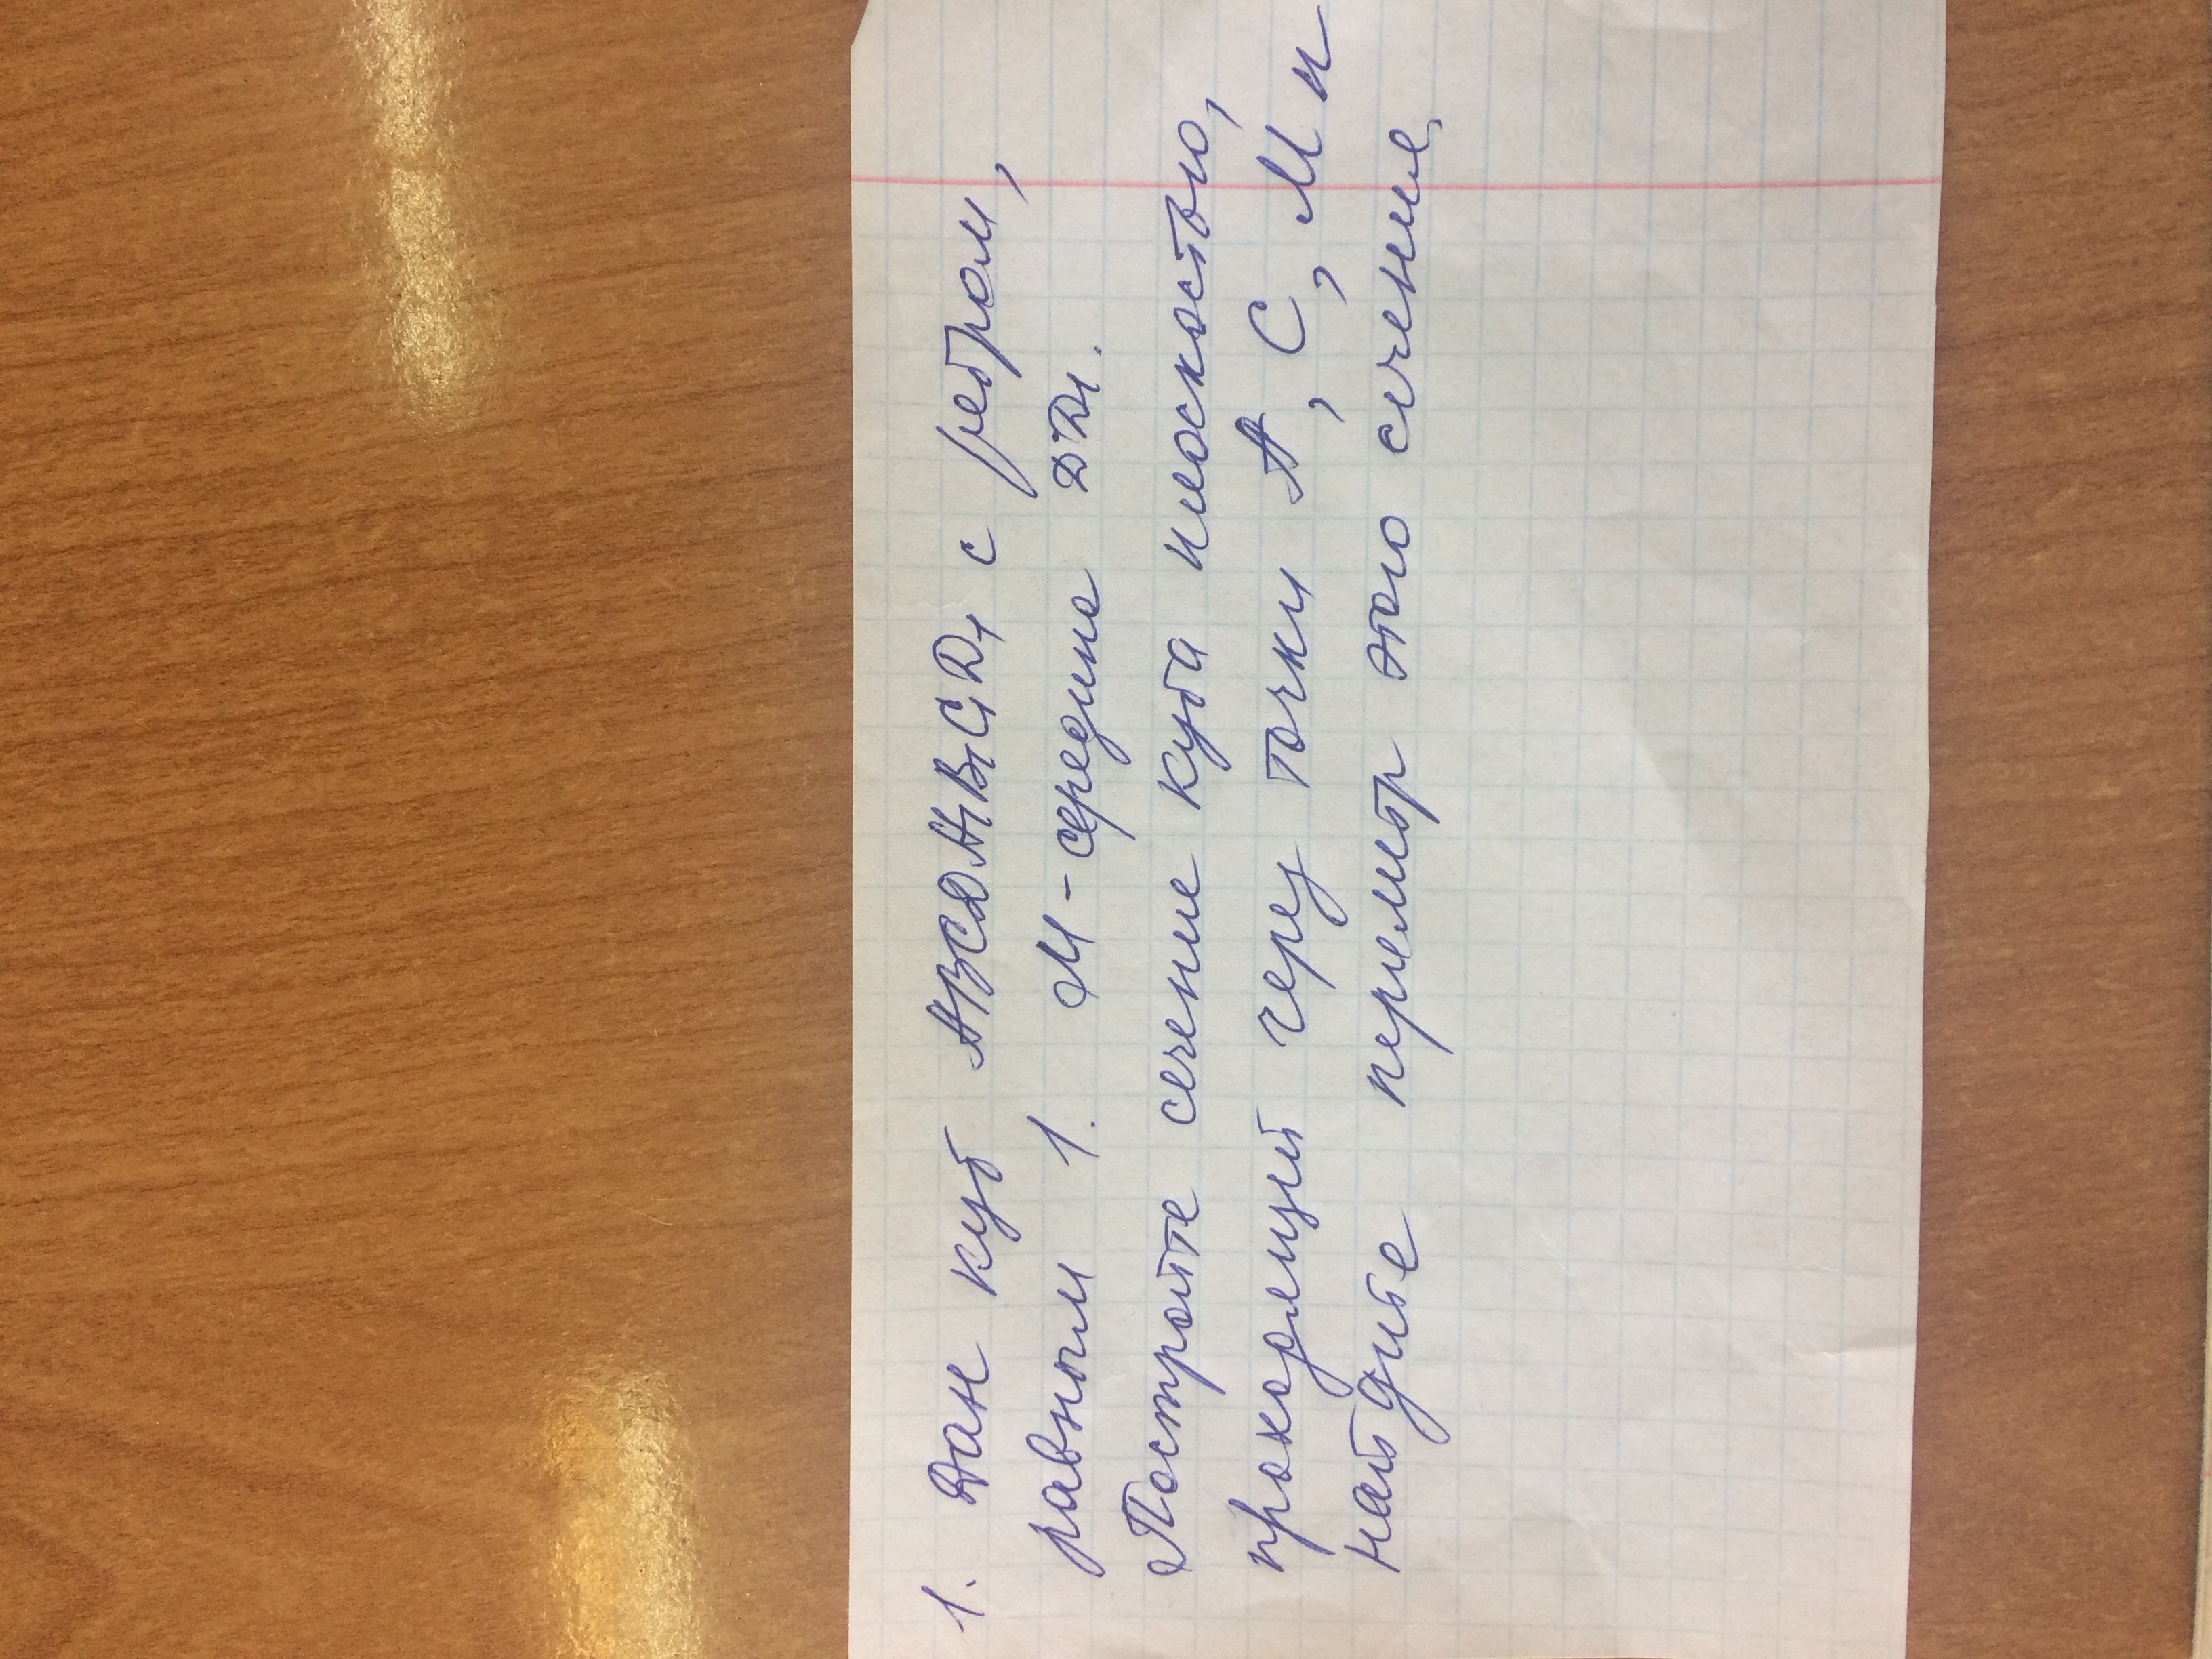 1. Дан куб ABCDA₁B₁C₁D₁ с ребром,
равным 1. М - середина DD₁.
Постройте сечение куба плоскостью,
проходящей через точки А, С, М и
найдите периметр этого сечения.